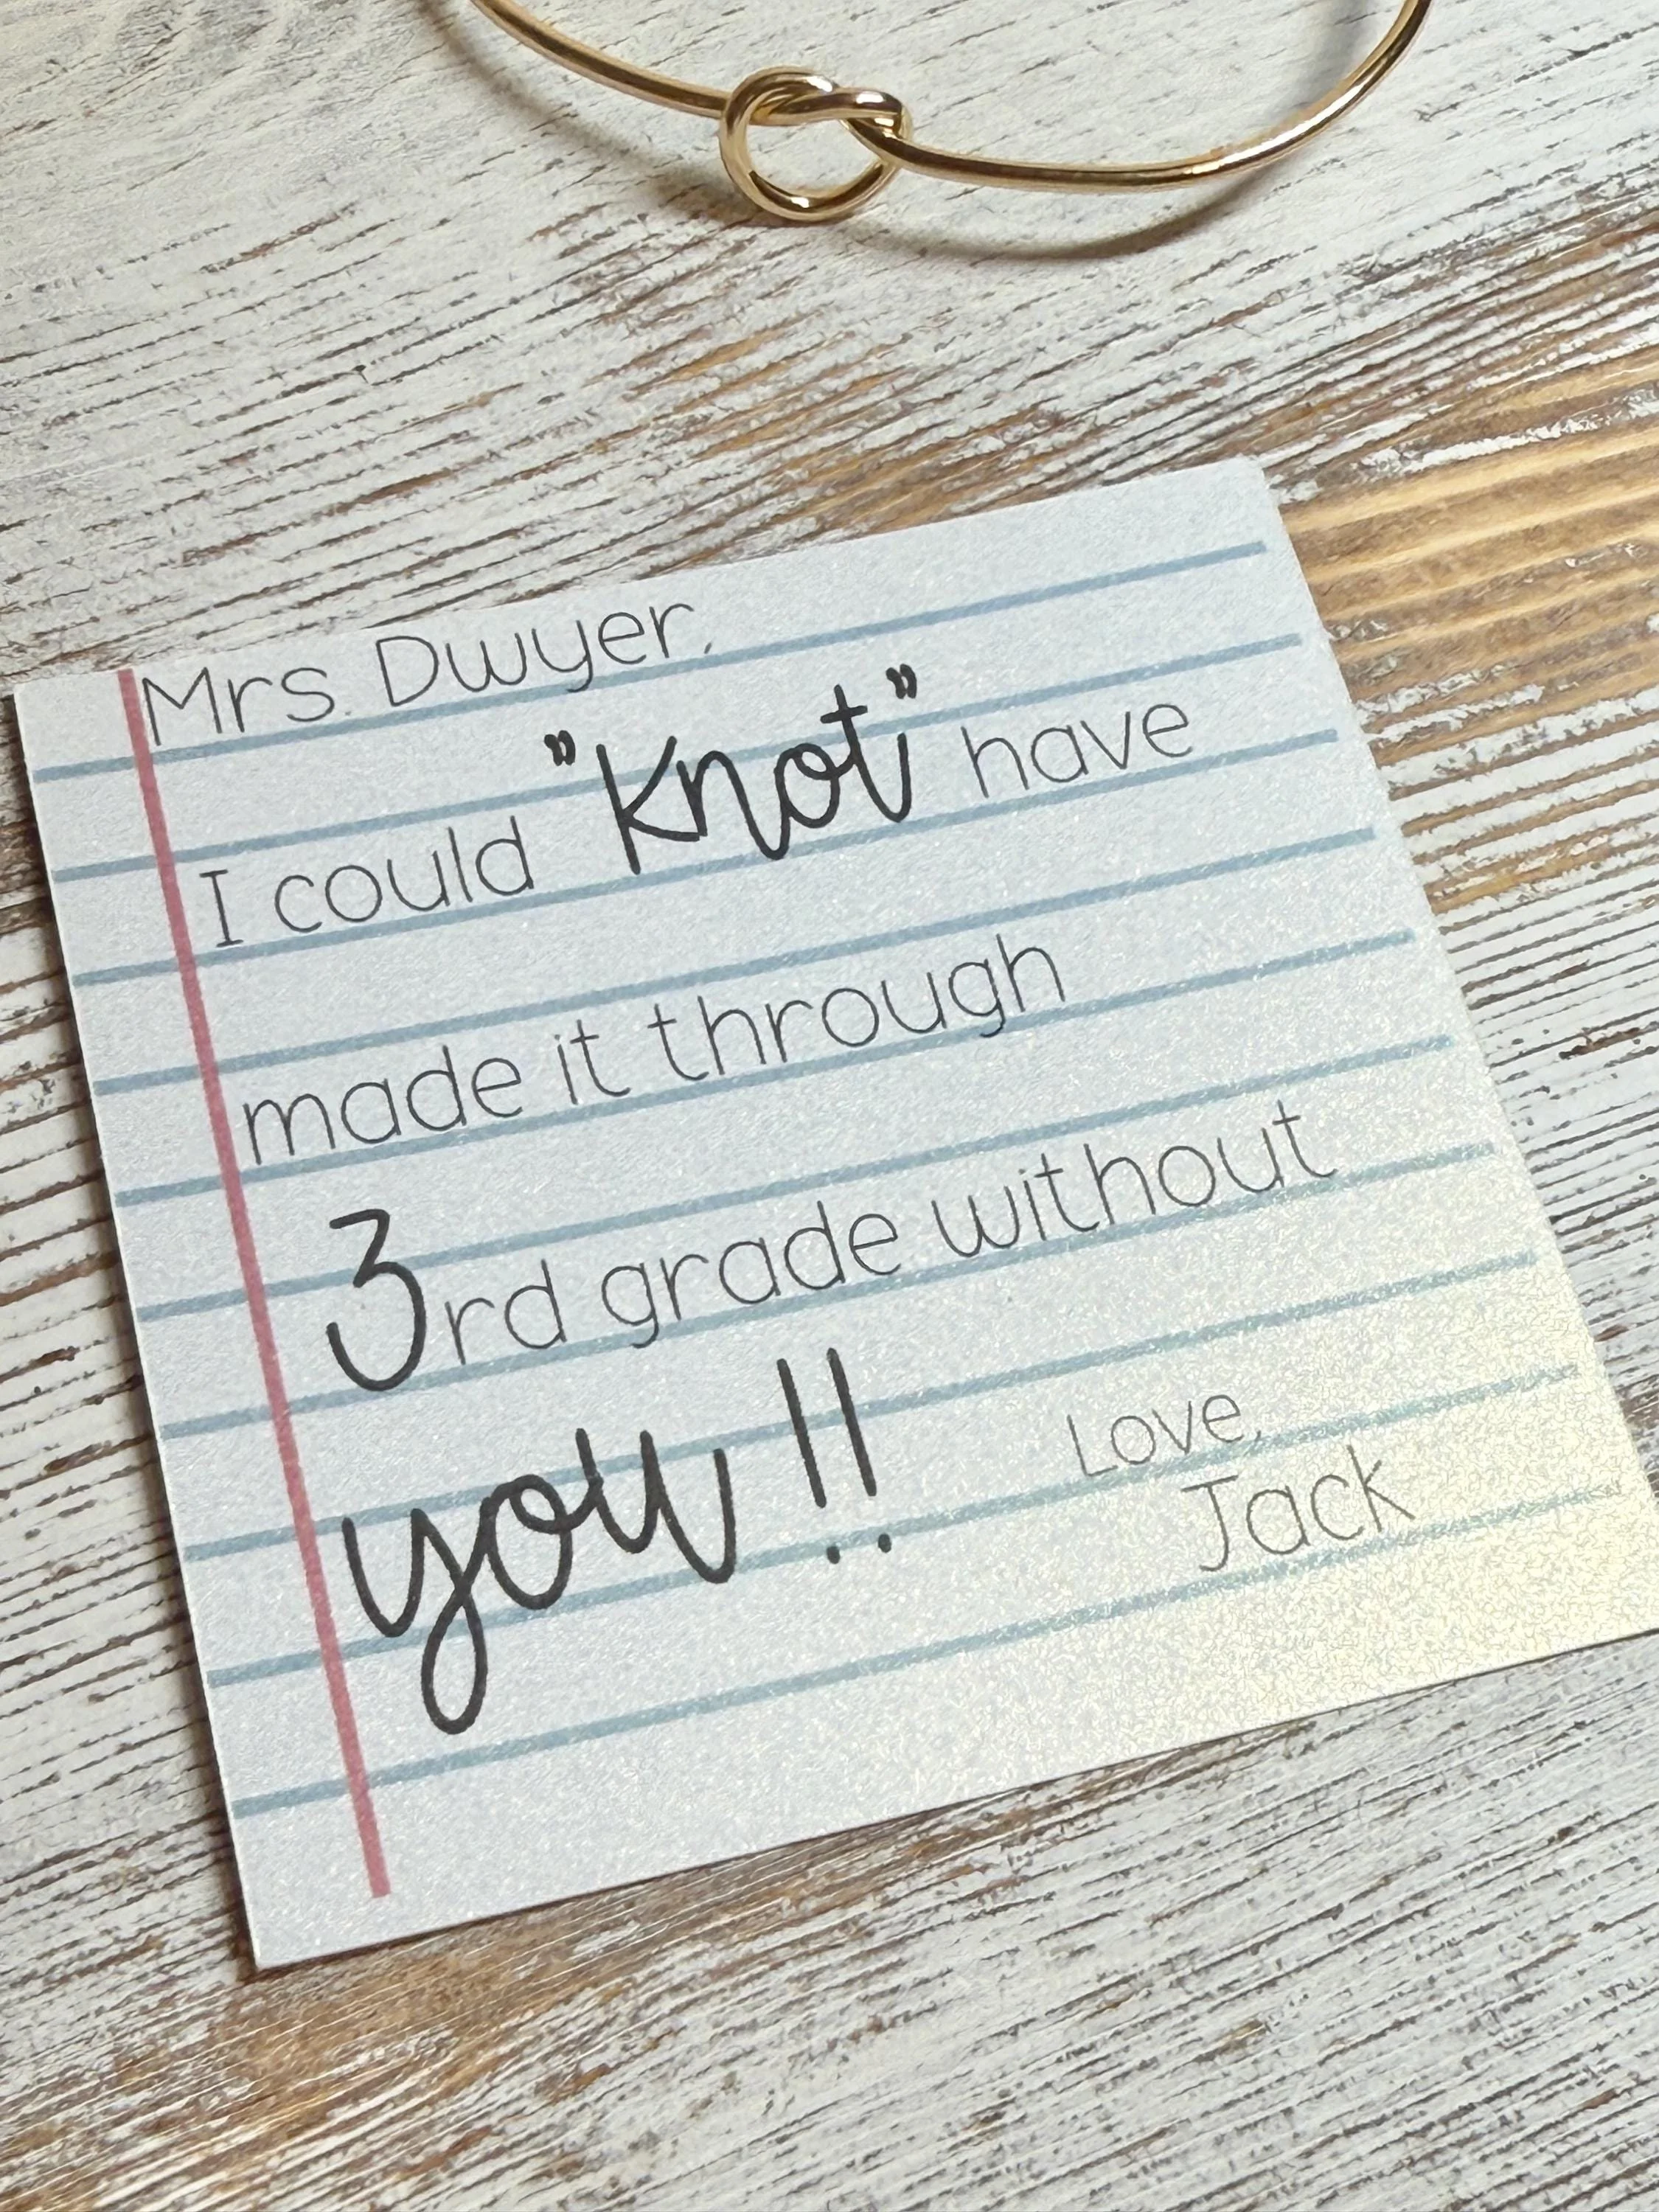 Mrs. Dwyer,
I could "Knot" have
made it through
3rd grade without
you!!
Love,
Jack